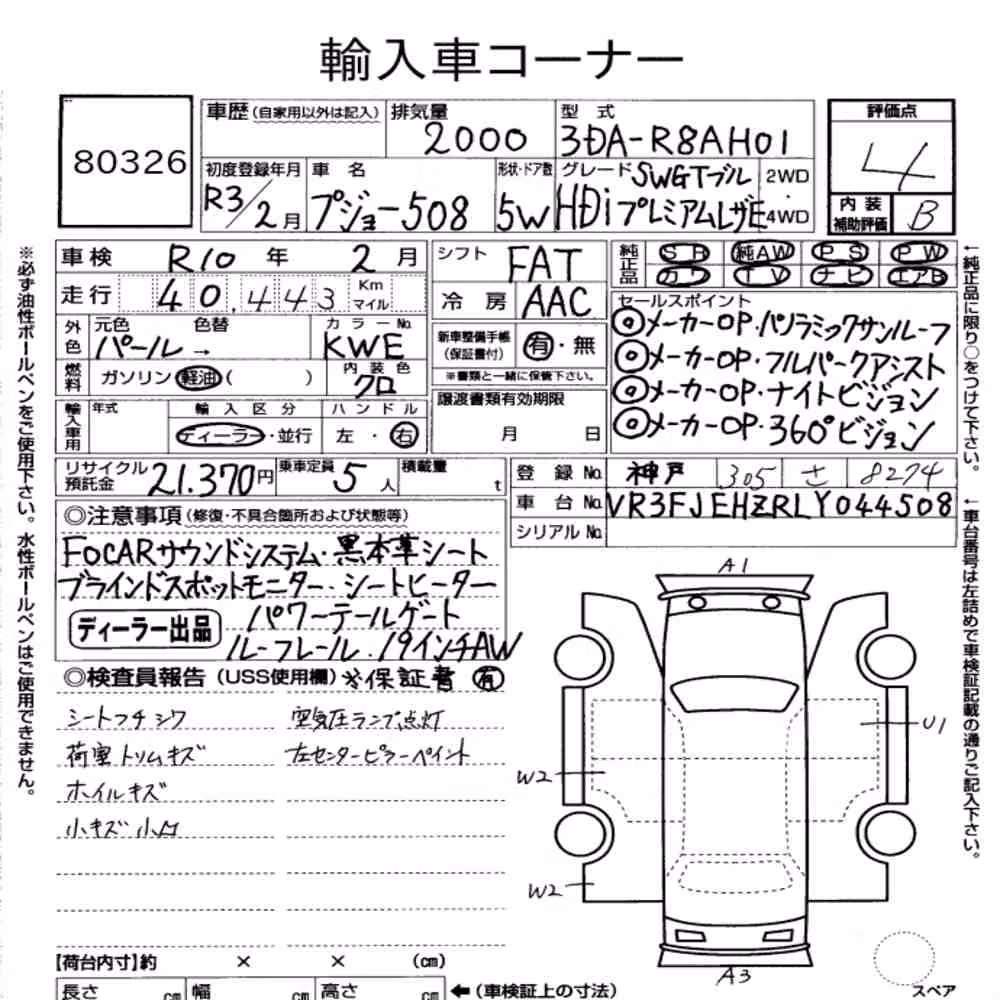 輸入車コーナー
80326
車歴(自家用以外は記入)
排気量
2000
型式
3DA-R8AH01
評価点
4
初度登録年月
R3/2月
車名
プジョー508
形状・ドア数
5W
グレード SWGTブル
HDiプレミアムレザE
2WD
・
4WD
内装
補助評価
B
車検 R10年 2月
シフト
FAT
純正品
SR 純AW PS PW
カワ TV ナビ エアB
走行 40,443 Km マイル
冷房 AAC
セールスポイント
◎メーカーOP・パノラミックサンルーフ
◎メーカーOP・フルパークアシスト
◎メーカーOP・ナイトビジョン
◎メーカーOP・360°ビジョン
外色
元色 色替
パール→
カラーNo.
KWE
新車整備手帳
(保証書付)
有・無
※書類と一緒に保管下さい。
燃料
ガソリン 軽油( )
内装色
クロ
譲渡書類有効期限
月 日
輸入車用
年式
輸入区分
ディーラー・並行
ハンドル
左・右
リサイクル
預託金
21,370円
乗車定員
5人
積載量
t
登録No. 神戸 305 さ 8274
車台No. VR3FJEHZRLY044508
シリアルNo.
◎注意事項(修復・不具合箇所および状態等)
FOCARサウンドシステム・黒本革シート
ブラインドスポットモニター・シートヒーター
ディーラー出品
パワーテールゲート
ルーフレール・19インチAW
◎検査員報告(USS使用欄)※保証書 有
シートフチシワ
空気圧ランプ点灯
荷室トリムキズ
左センターピラーペイント
ホイルキズ
小キズ 小凹
A1
U1
W2
W2
A3
スペア
【荷台内寸】約 × × (cm)
長さ cm 幅 cm 高さ cm
←(車検証上の寸法)
※必ず油性ボールペンをご使用下さい。水性ボールペンはご使用できません。
←純正品に限り○をつけて下さい。
←車台番号は左詰めで車検証記載の通りご記入下さい。